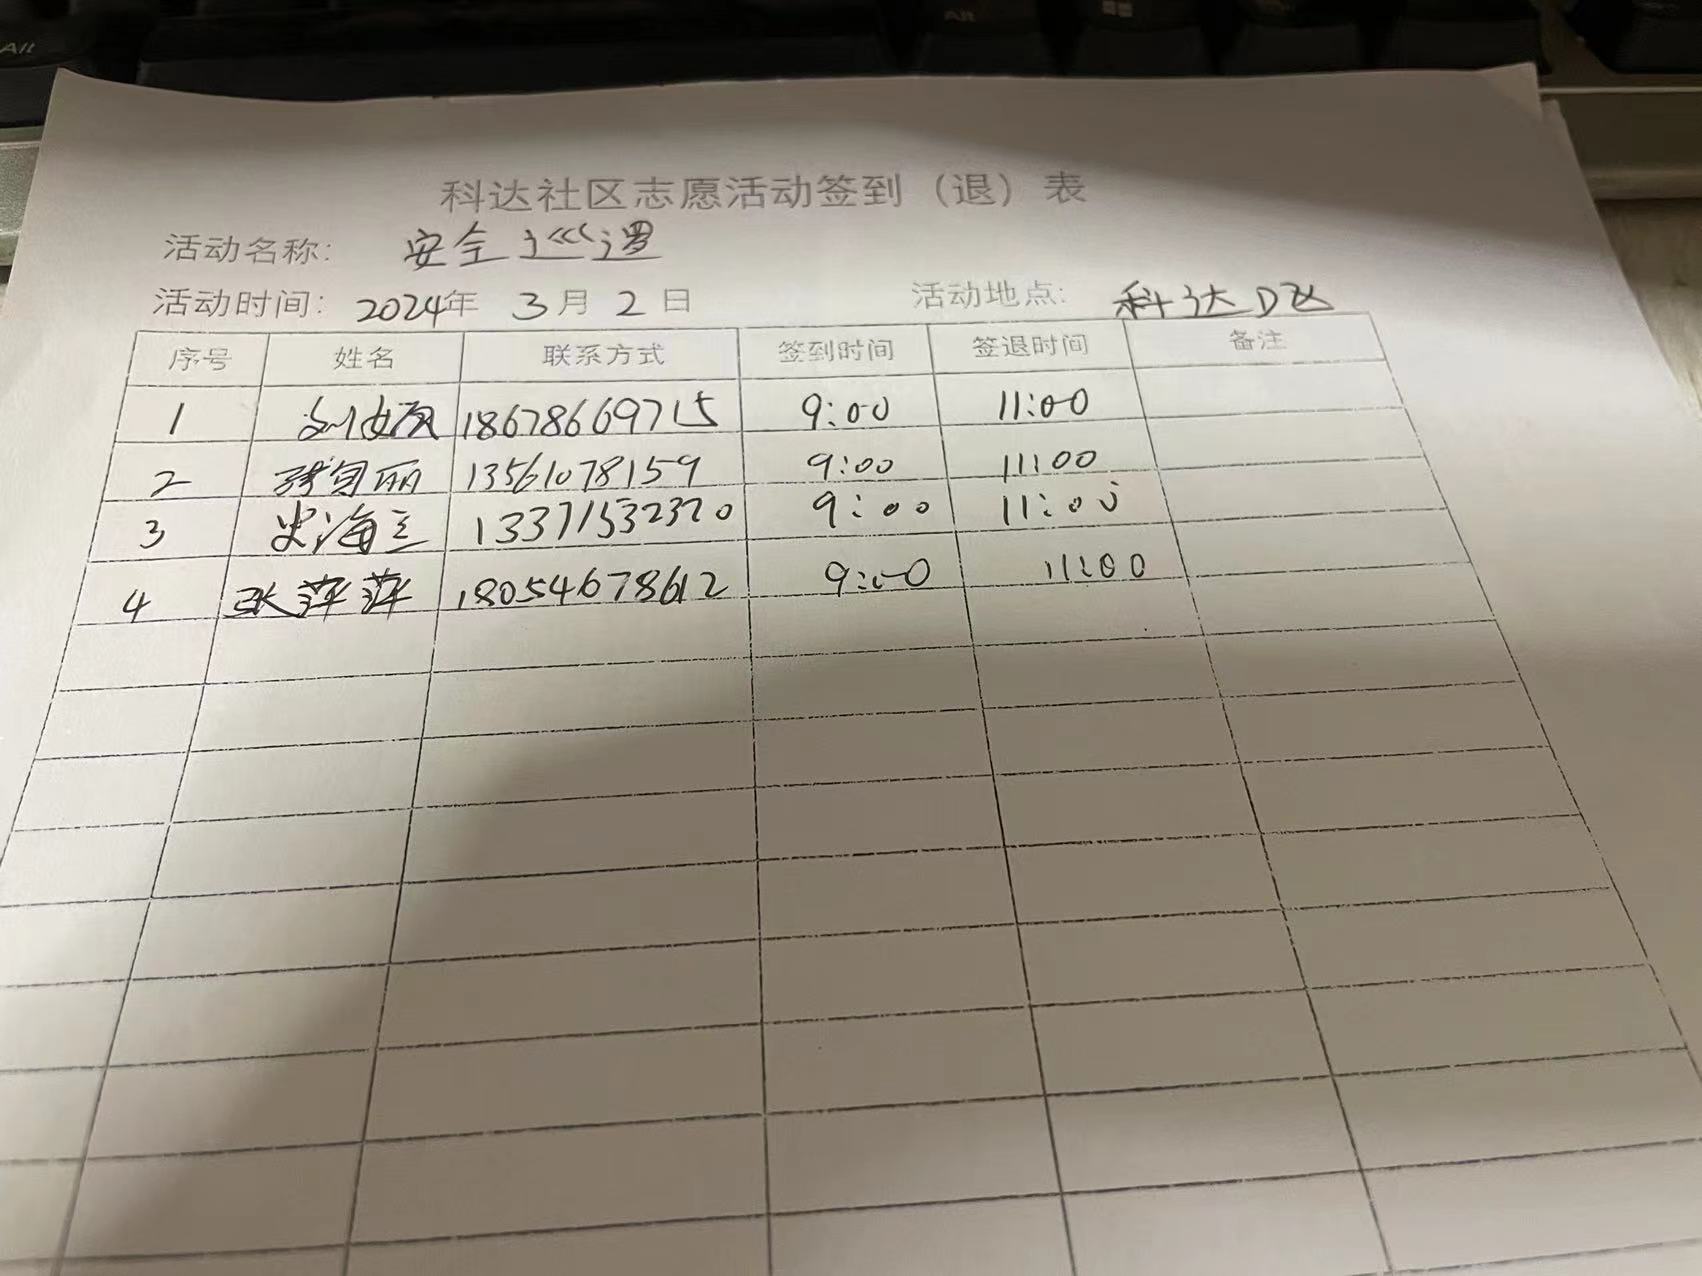 科达社区志愿活动签到（退）表
活动名称: 安全巡逻
活动时间: 2024年 3月 2日 活动地点: 科达D区
序号 姓名 联系方式 签到时间 签退时间 备注
1 18678669715 9:00 11:00
2 丽 13561078159 9:00 11:00
3 史海 13371532320 9:00 11:00
4 张萍萍 18054678612 9:00 11:00